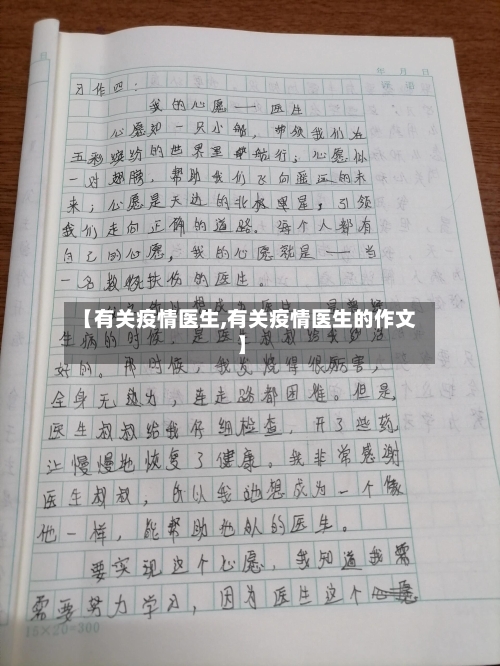 年 月 日
习作四：
我的心愿——医生
心愿如一只小船，带领我们在
五彩缤纷的世界里航行；心愿似
一对翅膀，帮助我们飞向遥远的未
来；心愿是天边的北极星，引领
我们走向正确的道路。每个人都有
自己的心愿，我的心愿就是——当
一名救死扶伤的医生。
【有关疫情医生,有关疫情医生的作文
】
生病的时候，是医
好的。那时候，我发烧得很厉害，
全身无力，连走路都困难。但是，
医生叔叔给我仔细检查，开了些药，
让慢慢地恢复了健康。我非常感谢
医生叔叔，所以我也想成为一个像
他一样，能帮助他人的医生。
要实现这个心愿，我知道我需
需要努力学习，因为医生这个
15×20=300